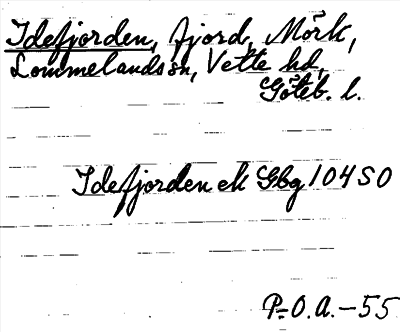 Idefjorden, fjord, Mörk,
Lommelands sn, Vette hd,
Göteb. l.
Idefjorden ek Gbg 104 SO
P.O.A. - 55